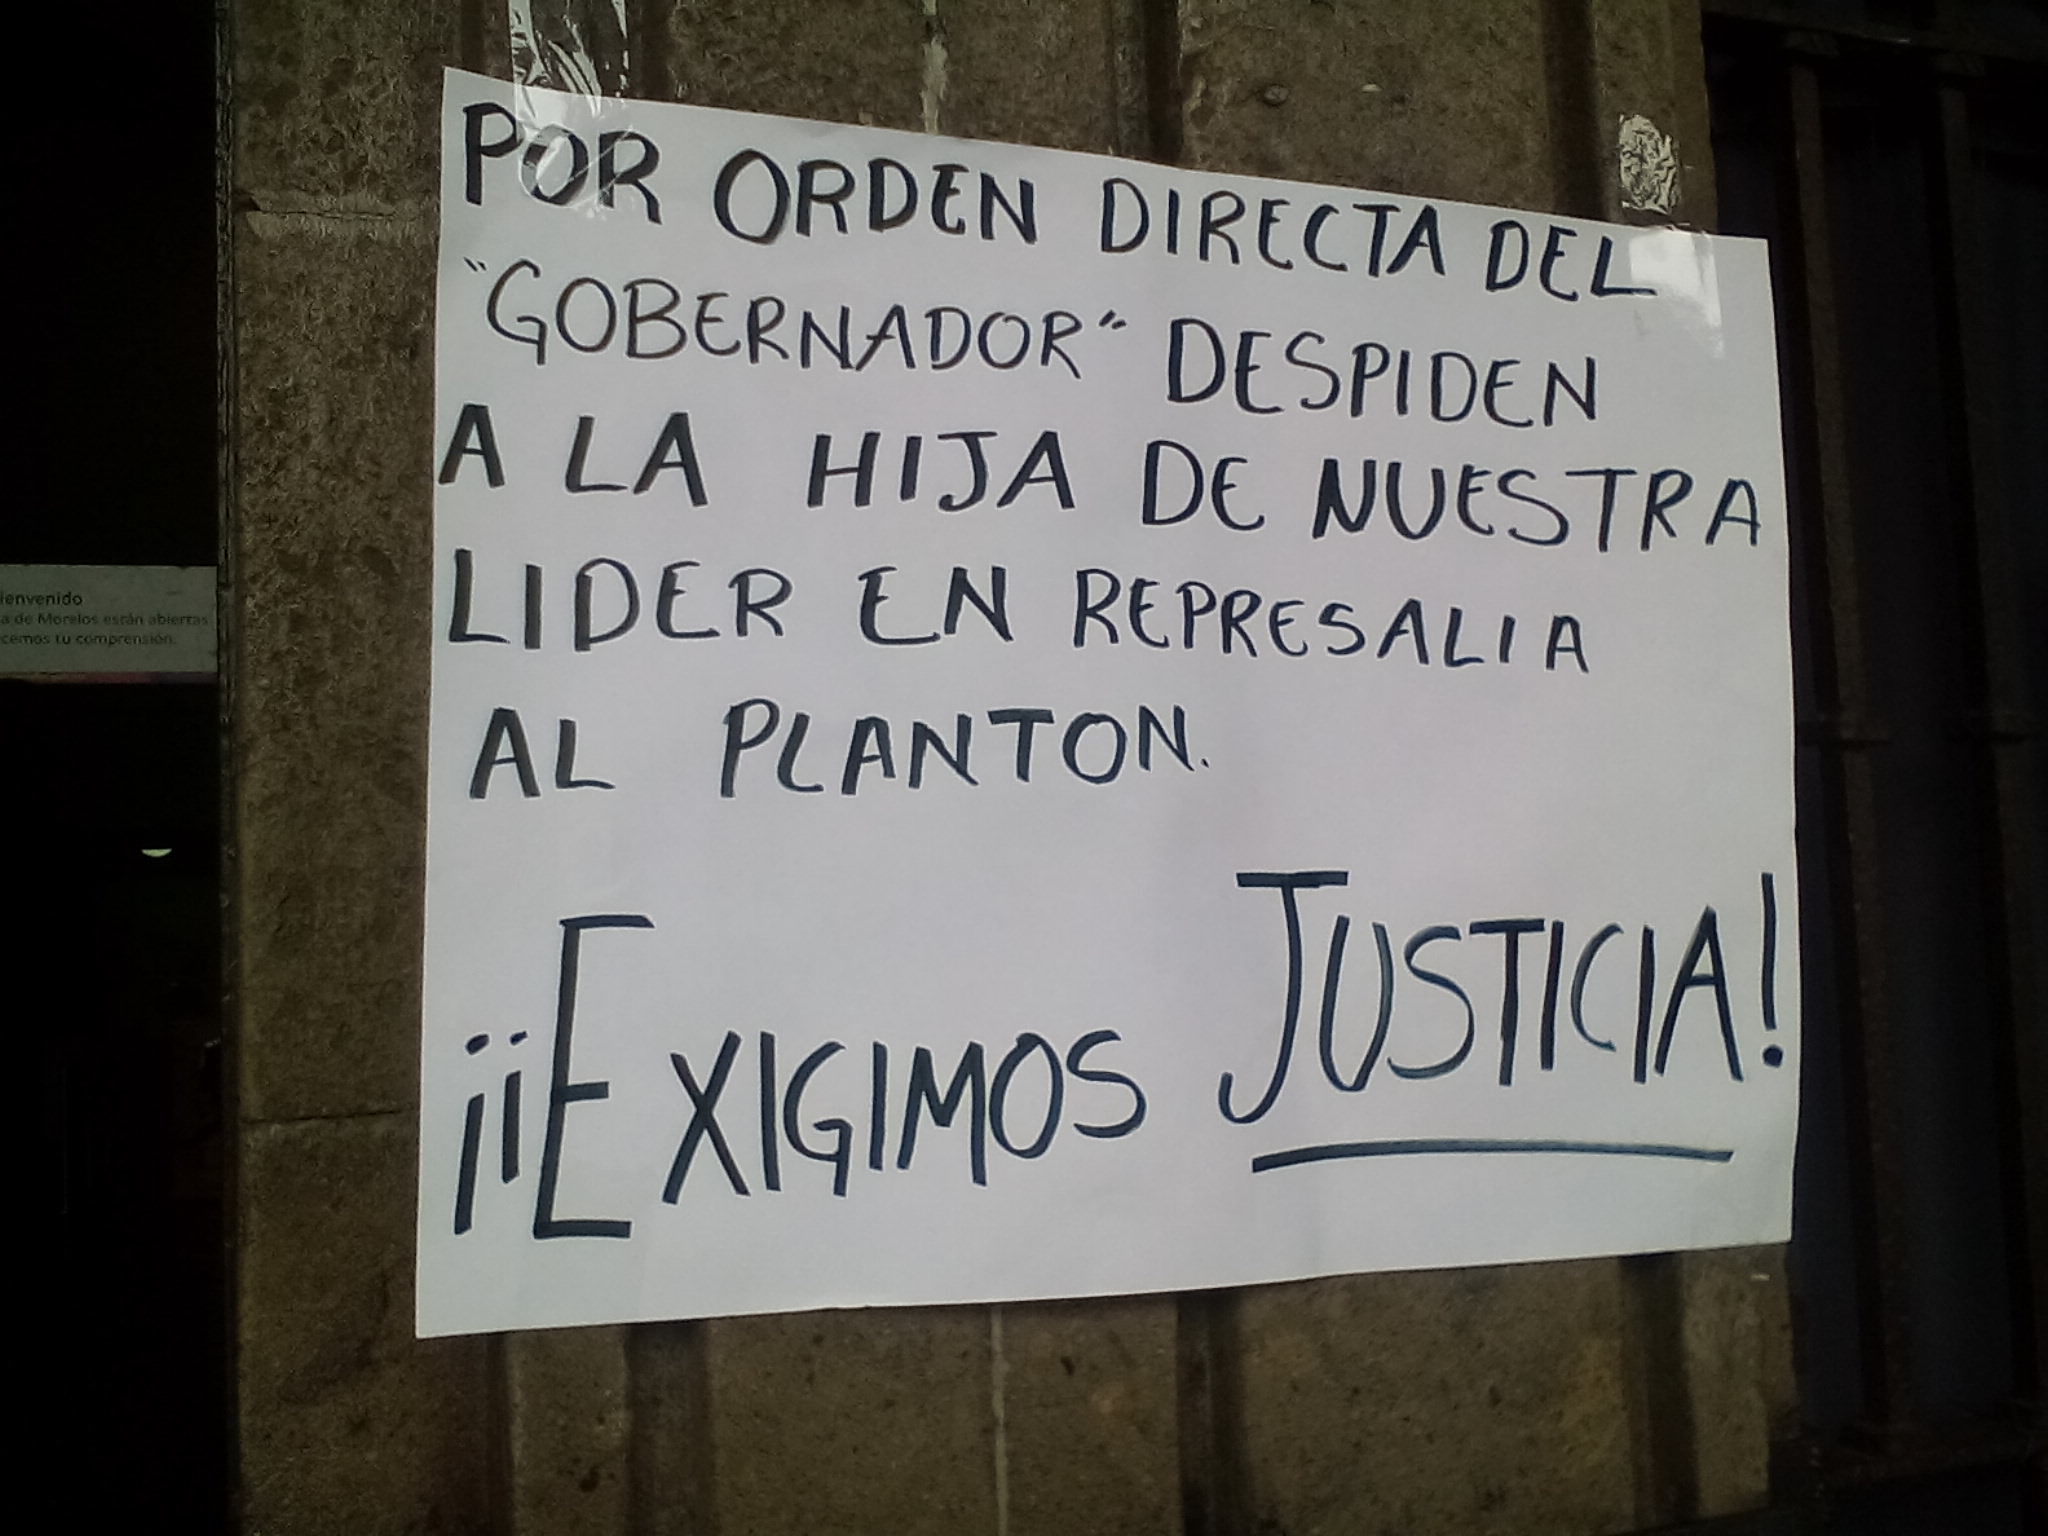 POR ORDEN DIRECTA DEL
"GOBERNADOR" DESPIDEN
A LA HIJA DE NUESTRA
LIDER EN REPRESALIA
AL PLANTON.
¡¡EXIGIMOS JUSTICIA!
ienvenido
a de Morelos están abiertas
cemos tu comprensión.